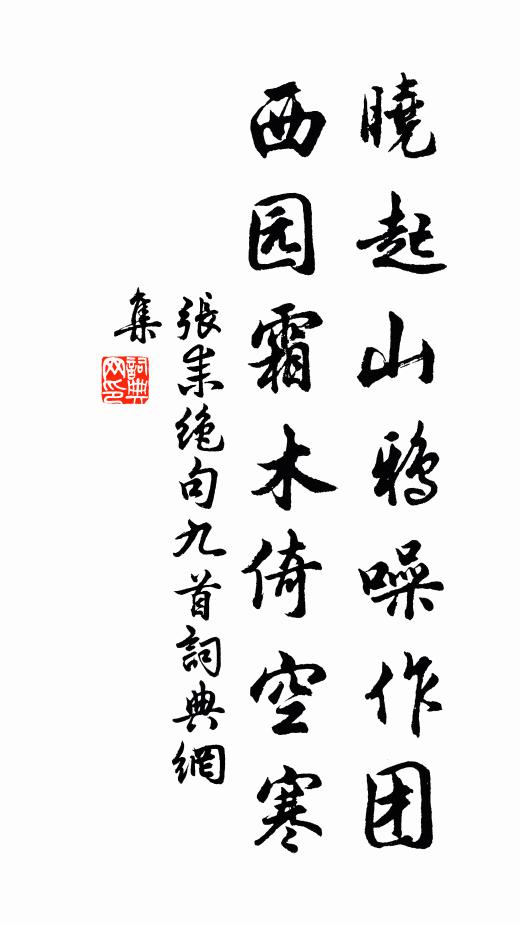 曉起山鴉噪作团
西园霜木倚空寒
張耒绝句九首詞典網
集
詞典網印